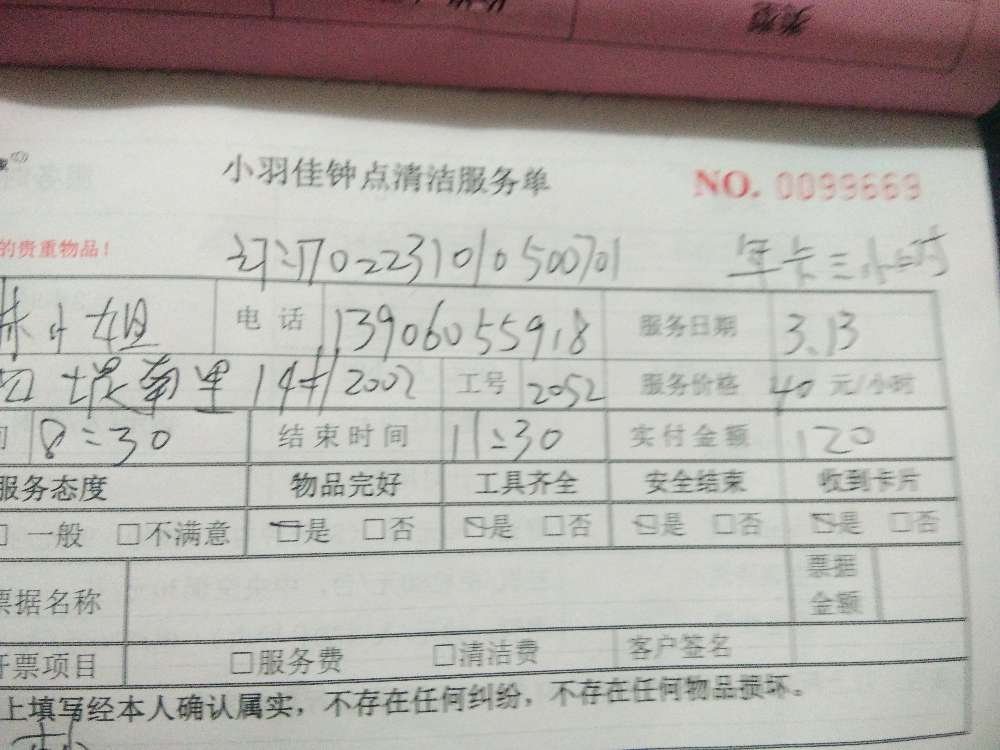 类型
小羽佳钟点清洁服务单 NO. 0099669
的贵重物品!
年卡三小时
小姐 电话 13906055918 服务日期 3.13
堤南里14#2002 工号 2052 服务价格 40 元/小时
8:30 结束时间 11:30 实付金额 120
服务态度 物品完好 工具齐全 安全结束 收到卡片
□一般 □不满意 是 □否 是 □否 是 □否 是 □否
票据名称 票据金额
开票项目 □服务费 □清洁费 客户签名
上填写经本人确认属实，不存在任何纠纷，不存在任何物品损坏。